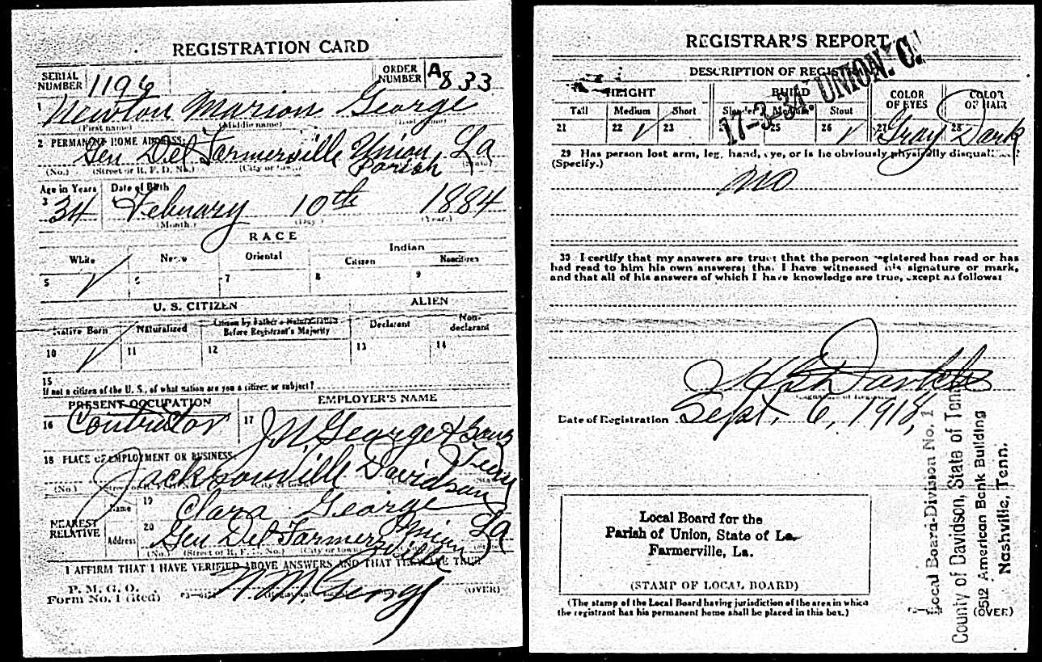 REGISTRATION CARD
SERIAL NUMBER 1196 ORDER NUMBER A833
1 Newton Marion George
(First name) (Middle name) (Last name)
2 PERMANENT HOME ADDRESS:
Gen Del Farmerville Union Parish La
(No.) (Street or R. F. D. No.) (City or town)
Age in Years Date of Birth
3 34 February 10th 1884
(Month.) (Day.) (Year.)
RACE
White Negro Oriental Indian
Citizen Noncitizen
5 ✓ 6 7 8 9
U. S. CITIZEN ALIEN
Native Born Naturalized Citizen by Father's Naturalization Before Registrant's Majority Declarant Non-declarant
10 ✓ 11 12 13 14
15
If not a citizen of the U. S., of what nation are you a citizen or subject?
PRESENT OCCUPATION EMPLOYER'S NAME
16 Contractor 17 George &
18 PLACE OF EMPLOYMENT OR BUSINESS:
Jacksonville Davidson Tenn
(No.)
NEAREST RELATIVE
Name 19 Clara George
Address 20 Gen Del Farmerville Union La
(No.) (Street or R. F. D. No.) (City or town)
I AFFIRM THAT I HAVE VERIFIED ABOVE ANSWERS AND THAT THEY ARE TRUE
P. M. G. O.
Form No. 1 (Red) N. M. George (OVER)
REGISTRAR'S REPORT
17-3-24. UNION. C.
DESCRIPTION OF REGISTRANT
HEIGHT BUILD COLOR OF EYES COLOR OF HAIR
Tall Medium Short Slender Medium Stout
21 22 ✓ 23 25 26 ✓ 27 Gray 28 Dark
29 Has person lost arm, leg, hand, eye, or is he obviously physically disqualified?
(Specify.)
no
30 I certify that my answers are true; that the person registered has read or has
had read to him his own answers; that I have witnessed his signature or mark,
and that all of his answers of which I have knowledge are true, except as follows:
Date of Registration Sept. 6, 1918,
Local Board for the
Parish of Union, State of La.
Farmerville, La.
(STAMP OF LOCAL BOARD)
(The stamp of the Local Board having jurisdiction of the area in which
the registrant has his permanent home shall be placed in this box.)
(OVER)
Local Board-Division No. 1
County of Davidson, State of Tenn.
512 American Bank Building
Nashville, Tenn.